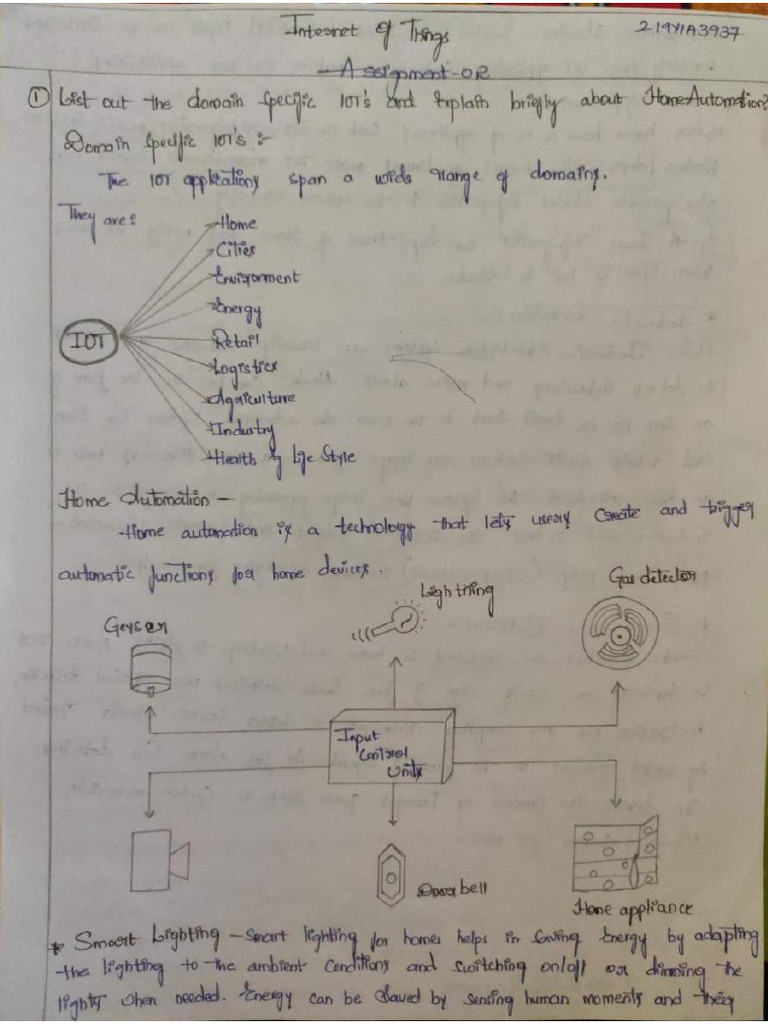 Internet of Things
219Y1A3937
Assignment-02
① List out the domain specific IOT's and Explain briefly about Home Automation?
Domain Specific IOT's :-
The IOT applications span a wide range of domains.
They are:
Home
Cities
Environment
Energy
IOT
Retail
Logistics
Agriculture
Industry
Health & Life Style
Home Automation -
Home automation is a technology that lets users create and trigger
automatic functions for home devices.
Lighthing
Gas detector
Geyser
Input
Control
Units
Door bell
Home appliance
* Smart Lighting - Smart lighting for homes helps in saving Energy by adapting
the lighting to the ambient conditions and switching on/off or dimming the
lights when needed. Energy can be saved by sensing human moments and their